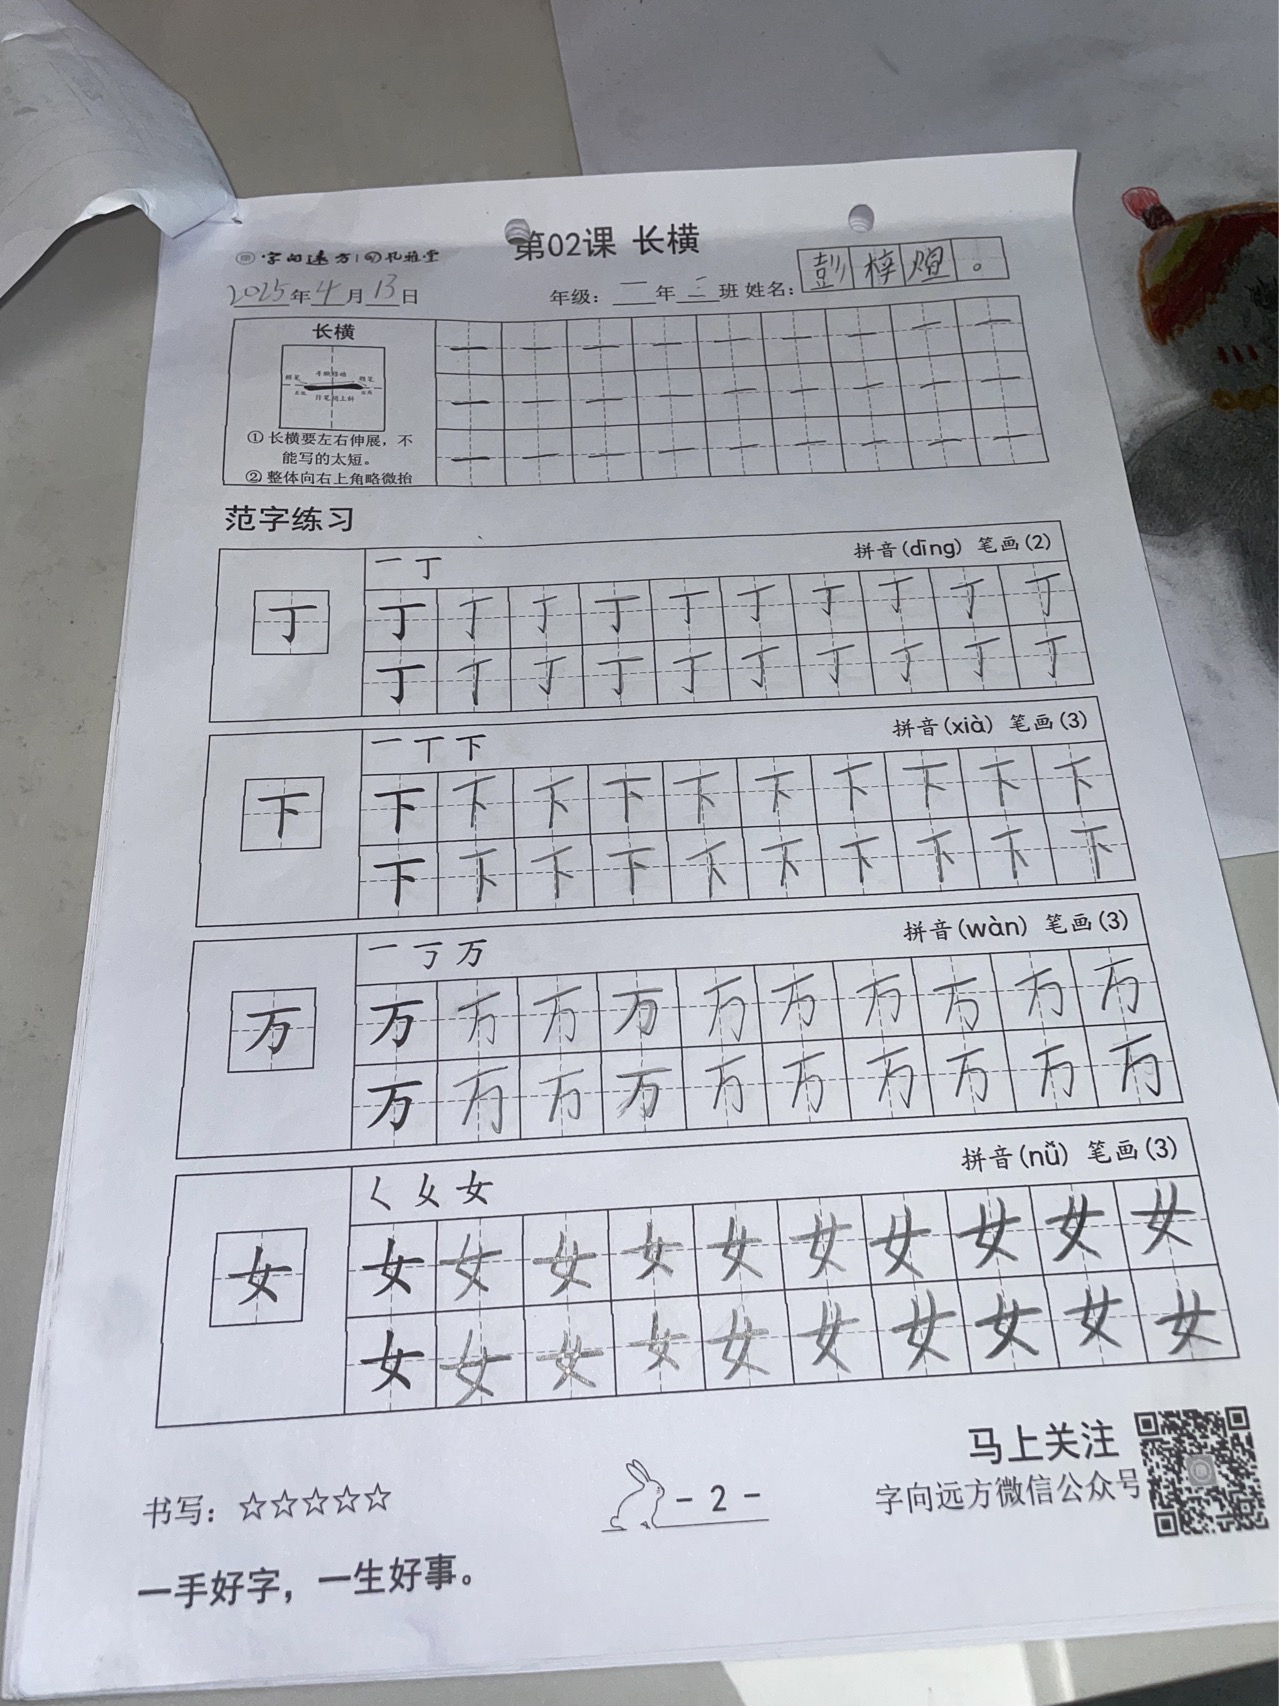 第02课 长横
字向远方 孔雅堂
2025年4月13日 年级：二年三班 姓名：彭梓煊。
长横
一 一 一 一 一 一 一 一 一
一 一 一 一 一 一 一 一 一
一 一 一 一 一 一 一 一 一
①长横要左右伸展，不
能写的太短。
②整体向右上角略微抬
范字练习
一 丁 拼音(dīng) 笔画(2)
丁
丁 丁 丁 丁 丁 丁 丁 丁 丁 丁
丁 丁 丁 丁 丁 丁 丁 丁 丁 丁
一 丅 下 拼音(xià) 笔画(3)
下
下 下 下 下 下 下 下 下 下 下
下 下 下 下 下 下 下 下 下 下
一 丂 万 拼音(wàn) 笔画(3)
万
万 万 万 万 万 万 万 万 万 万
万 万 万 万 万 万 万 万 万 万
く 女 女 拼音(nǚ) 笔画(3)
女
女 女 女 女 女 女 女 女 女 女
女 女 女 女 女 女 女 女 女 女
马上关注
字向远方微信公众号
书写：☆☆☆☆☆
- 2 -
一手好字，一生好事。